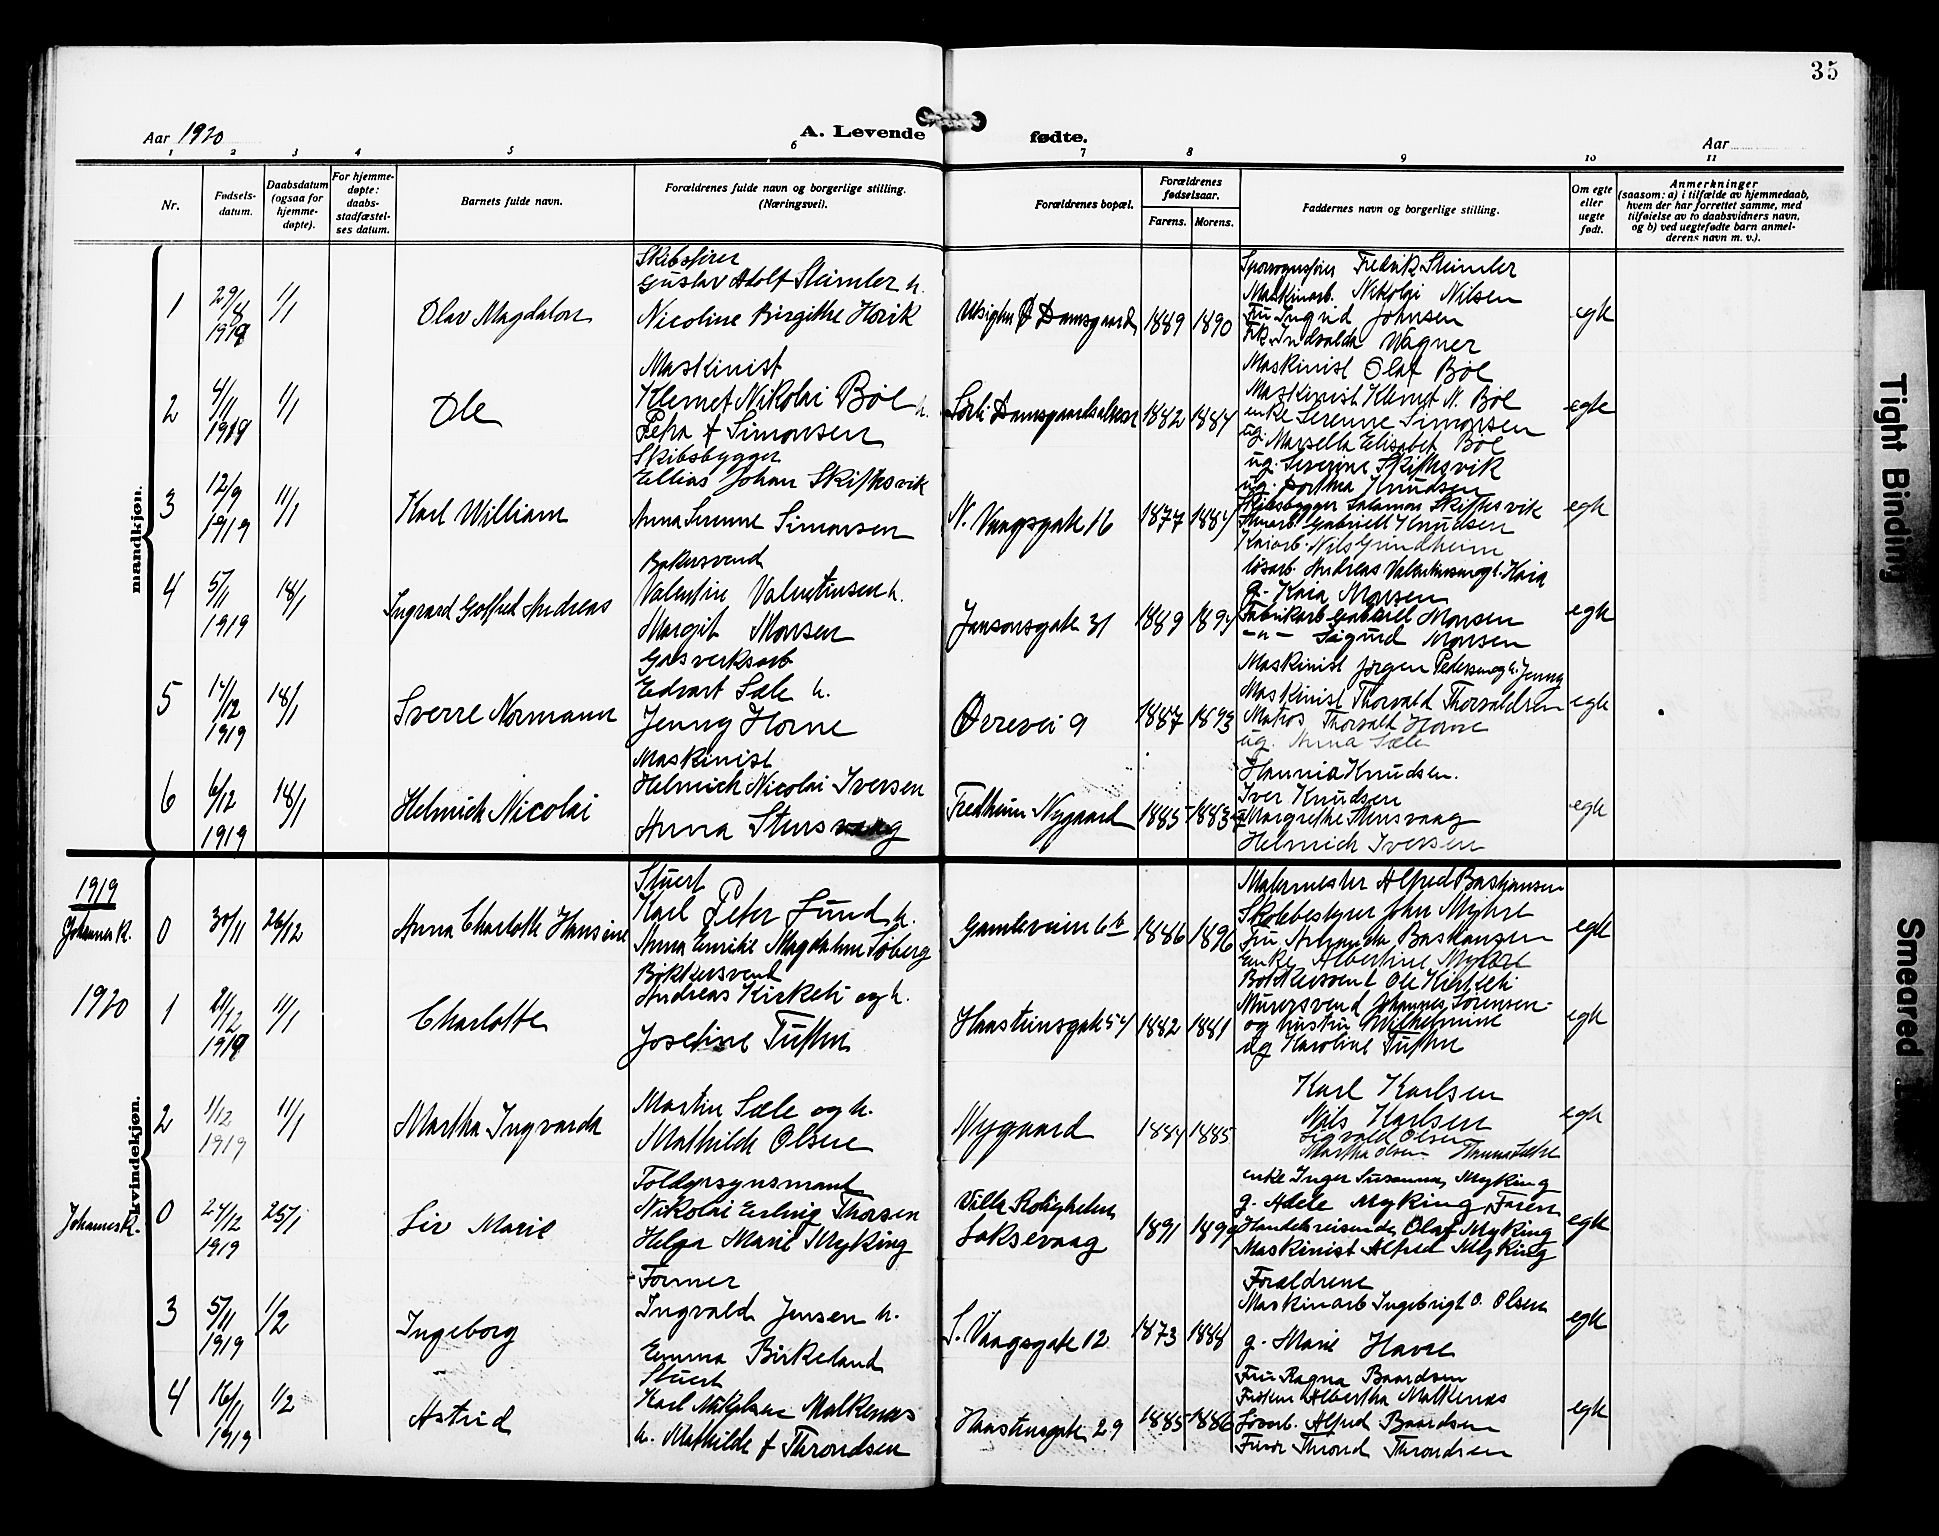 35
Aar 1920
A. Levende fødte.
Aar
1 2 3 4 5 6 7 8 9 10 11
Nr.
Fødsels-
datum.
Daabsdatum
(ogsaa for
hjemme-
døpte).
For hjemme-
døpte:
daabs-
stadfæstel-
ses datum.
Barnets fulde navn.
Forældrenes fulde navn og borgerlige stilling.
(Næringsvei).
Forældrenes bopæl.
Forældrenes
fødselsaar.
Farens. Morens.
Faddernes navn og borgerlige stilling.
Om egte
eller
uegte
født.
Anmerkninger
(saasom: a) i tilfælde av hjemmedaab,
hvem der har forrettet samme, med
tilføielse av to daabsvidners navn,
og b) ved uegtefødte barn anmel-
derens navn m. v.).
mandkjøn.
1
1919
1/1
Olav Magdalon
Skibsfører
Gustav Adolf Steimler h.
Nicoline Birgithe Hovik
Damsgaard
1889 1890
Fredrik Steimler
Maskinarb. Nikolai Nilsen
Fru Ingrid Johnsen
Frk. Indvalda Wagner
egte
2
4/11
1919
1/1
Ole
Maskinist
Klemet Nikolai Böe h.
Petra f Simonsen
1882 1884
Maskinist Olaf Böe
Maskinist Klemet N. Böe
enke Serenne Simonsen
ug. Marsella Elisabet Böe
egte
3
12/9
1919
11/1
Karl William
Skibsbygger
Ellias Johan Skiftesvik
Anna Serenne Simonsen
N. Vaagsgate 16
1877 1884
ug. Severine Skiftesvik
ug. Dorthea Knudsen
Skibsbygger Salamon Skiftesvik
Gabriell Knudsen
Kaiarb. Nils Grindheim
egte
4
5/11
1919
18/1
Ingvard Gotfred Andreas
Bakersvend
Valentin Valentinsen h.
Margit Monsen
Jansonsgate 31
1889 1894
løsarb. Andreas Valentinsen og h. Kaia
g. Kaia Monsen
Fabrikarb Gabriell Monsen
-"- Sigurd Monsen
egte
5
14/12
1919
18/1
Sverre Normann
Gasverksarb
Edvart Sæle h.
Jenny Horne
Ørrevei 9
1887 1893
Maskinist Jørgen Pedersen og h. Jenny
Maskinist Thorvald Thorvaldsen
Matros Thorvald Horne
ug. Anna Sæle
egte
6
6/12
1919
18/1
Helmich Nicolai
Maskinist
Helmich Nicolai Iversen
Anna Stensvaag
Fredheim Nygaard
1885 1883
Hannia Knudsen.
Iver Knudsen
Margrethe Stensvaag
Helmich Iversen
egte
kvindekjøn.
1919
Johannes k.
0
30/11
26/12
Anna Charlotte Hansine
Stuert
Karl Peter Lund h.
Anna Emilie Magdalene Söberg
Gamleveien 6 b
1886 1896
Malermester Alfred Bastiansen
Skolebestyrer John Myhre
Fru Amanda Bastiansen
Enke Albertine Myhre
egte
1920
1
21/12
1919
11/1
Charlotte
Bökkersvend
Andreas Kirketi og h.
Josefine Tuften
Haasteinsgate 54
1882 1881
Bökkersvend Ole Kirketi
Murersvend Johannes Sörensen
og hustru Wilhelmine
ug Karoline Tuften
egte
2
1/12
1919
11/1
Martha Ingvarda
Martin Sæle og h.
Mathilde Olsen
Nygaard
1884 1885
Karl Karlsen
Nils Karlsen
Sigvald Olsen
Martha Olsen Hanna Sæle
egte
Johannesk.
0
24/12
1919
25/1
Liv Marie
Toldopsynsmand
Nikolai Erling Thorsen
Helga Marie Myking
Villa Roligheden
Laksevaag
1891 1899
enke Inger Susanna Myking
g. Adele Myking, Faren
Handelsreisende Olaf Myking
Maskinist Alfred Myking
egte
3
5/11
1919
1/2
Ingeborg
Former
Ingvald Jensen h.
Emma Birkeland
S. Vaagsgate 12
1873 1888
Forældrene
Maskinarb Ingebrigt O. Olsen
g. Marie Havre
egte
4
16/11
1919
1/2
Astrid
Stuert
Karl Malkenæs
h. Mathilde f Throndsen
Haasteinsgate 29
1885 1886
Fru Ragna Baardsen
Frøken Albertha Malkenæs
Løsarb. Alfred Baardsen
Thrond Throndsen
egte
Tight Binding
Smeared